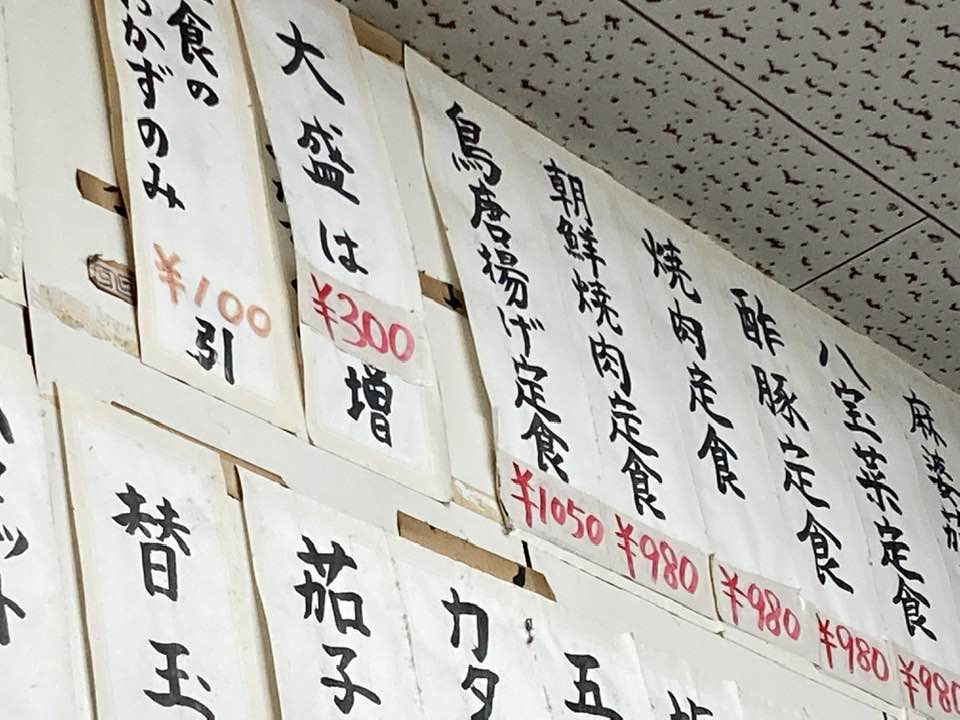 麻婆茄
八宝菜定食
¥980
酢豚定食
¥980
焼肉定食
¥980
朝鮮焼肉定食
¥980
鳥唐揚げ定食
¥1050
大盛は
¥300
増
食の
おかずのみ
¥100
引
五
カタ
茄子
替玉
ット